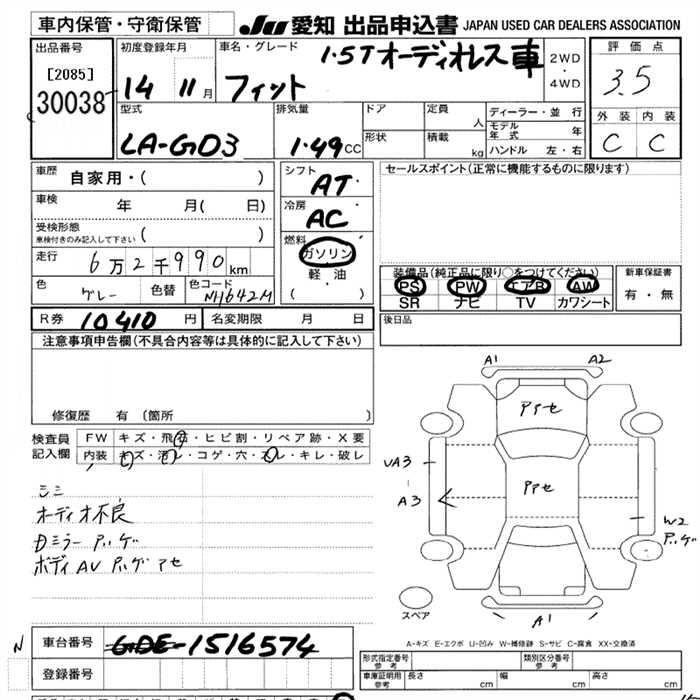 車内保管・守衛保管 JU 愛知 出品申込書 JAPAN USED CAR DEALERS ASSOCIATION
出品番号 初度登録年月 車名・グレード 1.5T オーディオレス車 2WD・4WD 評価点
[2085] 14 11月 フィット 3.5
30038 型式 排気量 ドア 定員 人 ディーラー・並行 外装 内装
LA-GD3 1.49CC 形状 積載 kg モデル年式 年 C C
ハンドル 左・右
車歴 自家用・( ) シフト AT セールスポイント(正常に機能するものに限ります)
車検 年 月( 日) 冷房 AC
受検形態 ( )
車検付きのみ記入して下さい
燃料 ガソリン
走行 6万2千990km 軽油 装備品(純正品に限り○をつけてください) 新車保証書
( ・ ) PS PW エアB AW 有・無
色 グレー 色替 色コード NH642M SR ナビ TV カワシート
R券 10410円 名変期限 月 日 後日品
注意事項申告欄(不具合内容等は具体的に記入して下さい)
修復歴 有 (箇所 )
検査員記入欄 FW キズ・飛石・ヒビ割・リペア跡・X要
内装 キズ・汚レ・コゲ・穴・スレ・キレ・破レ
A1 A2
アセ
アセ
UA3
A3
W2
A1
スペア
シミ
オーディオ不良
Dミラー
ボディAV
A-キズ E-エクボ U-凹み W-補修跡 S-サビ C-腐食 XX-交換済
N 車台番号 GDE-1516574 形式指定番号 参考 類別区分番号 参考
登録番号 車庫証明用 参考 長さ 幅 高さ